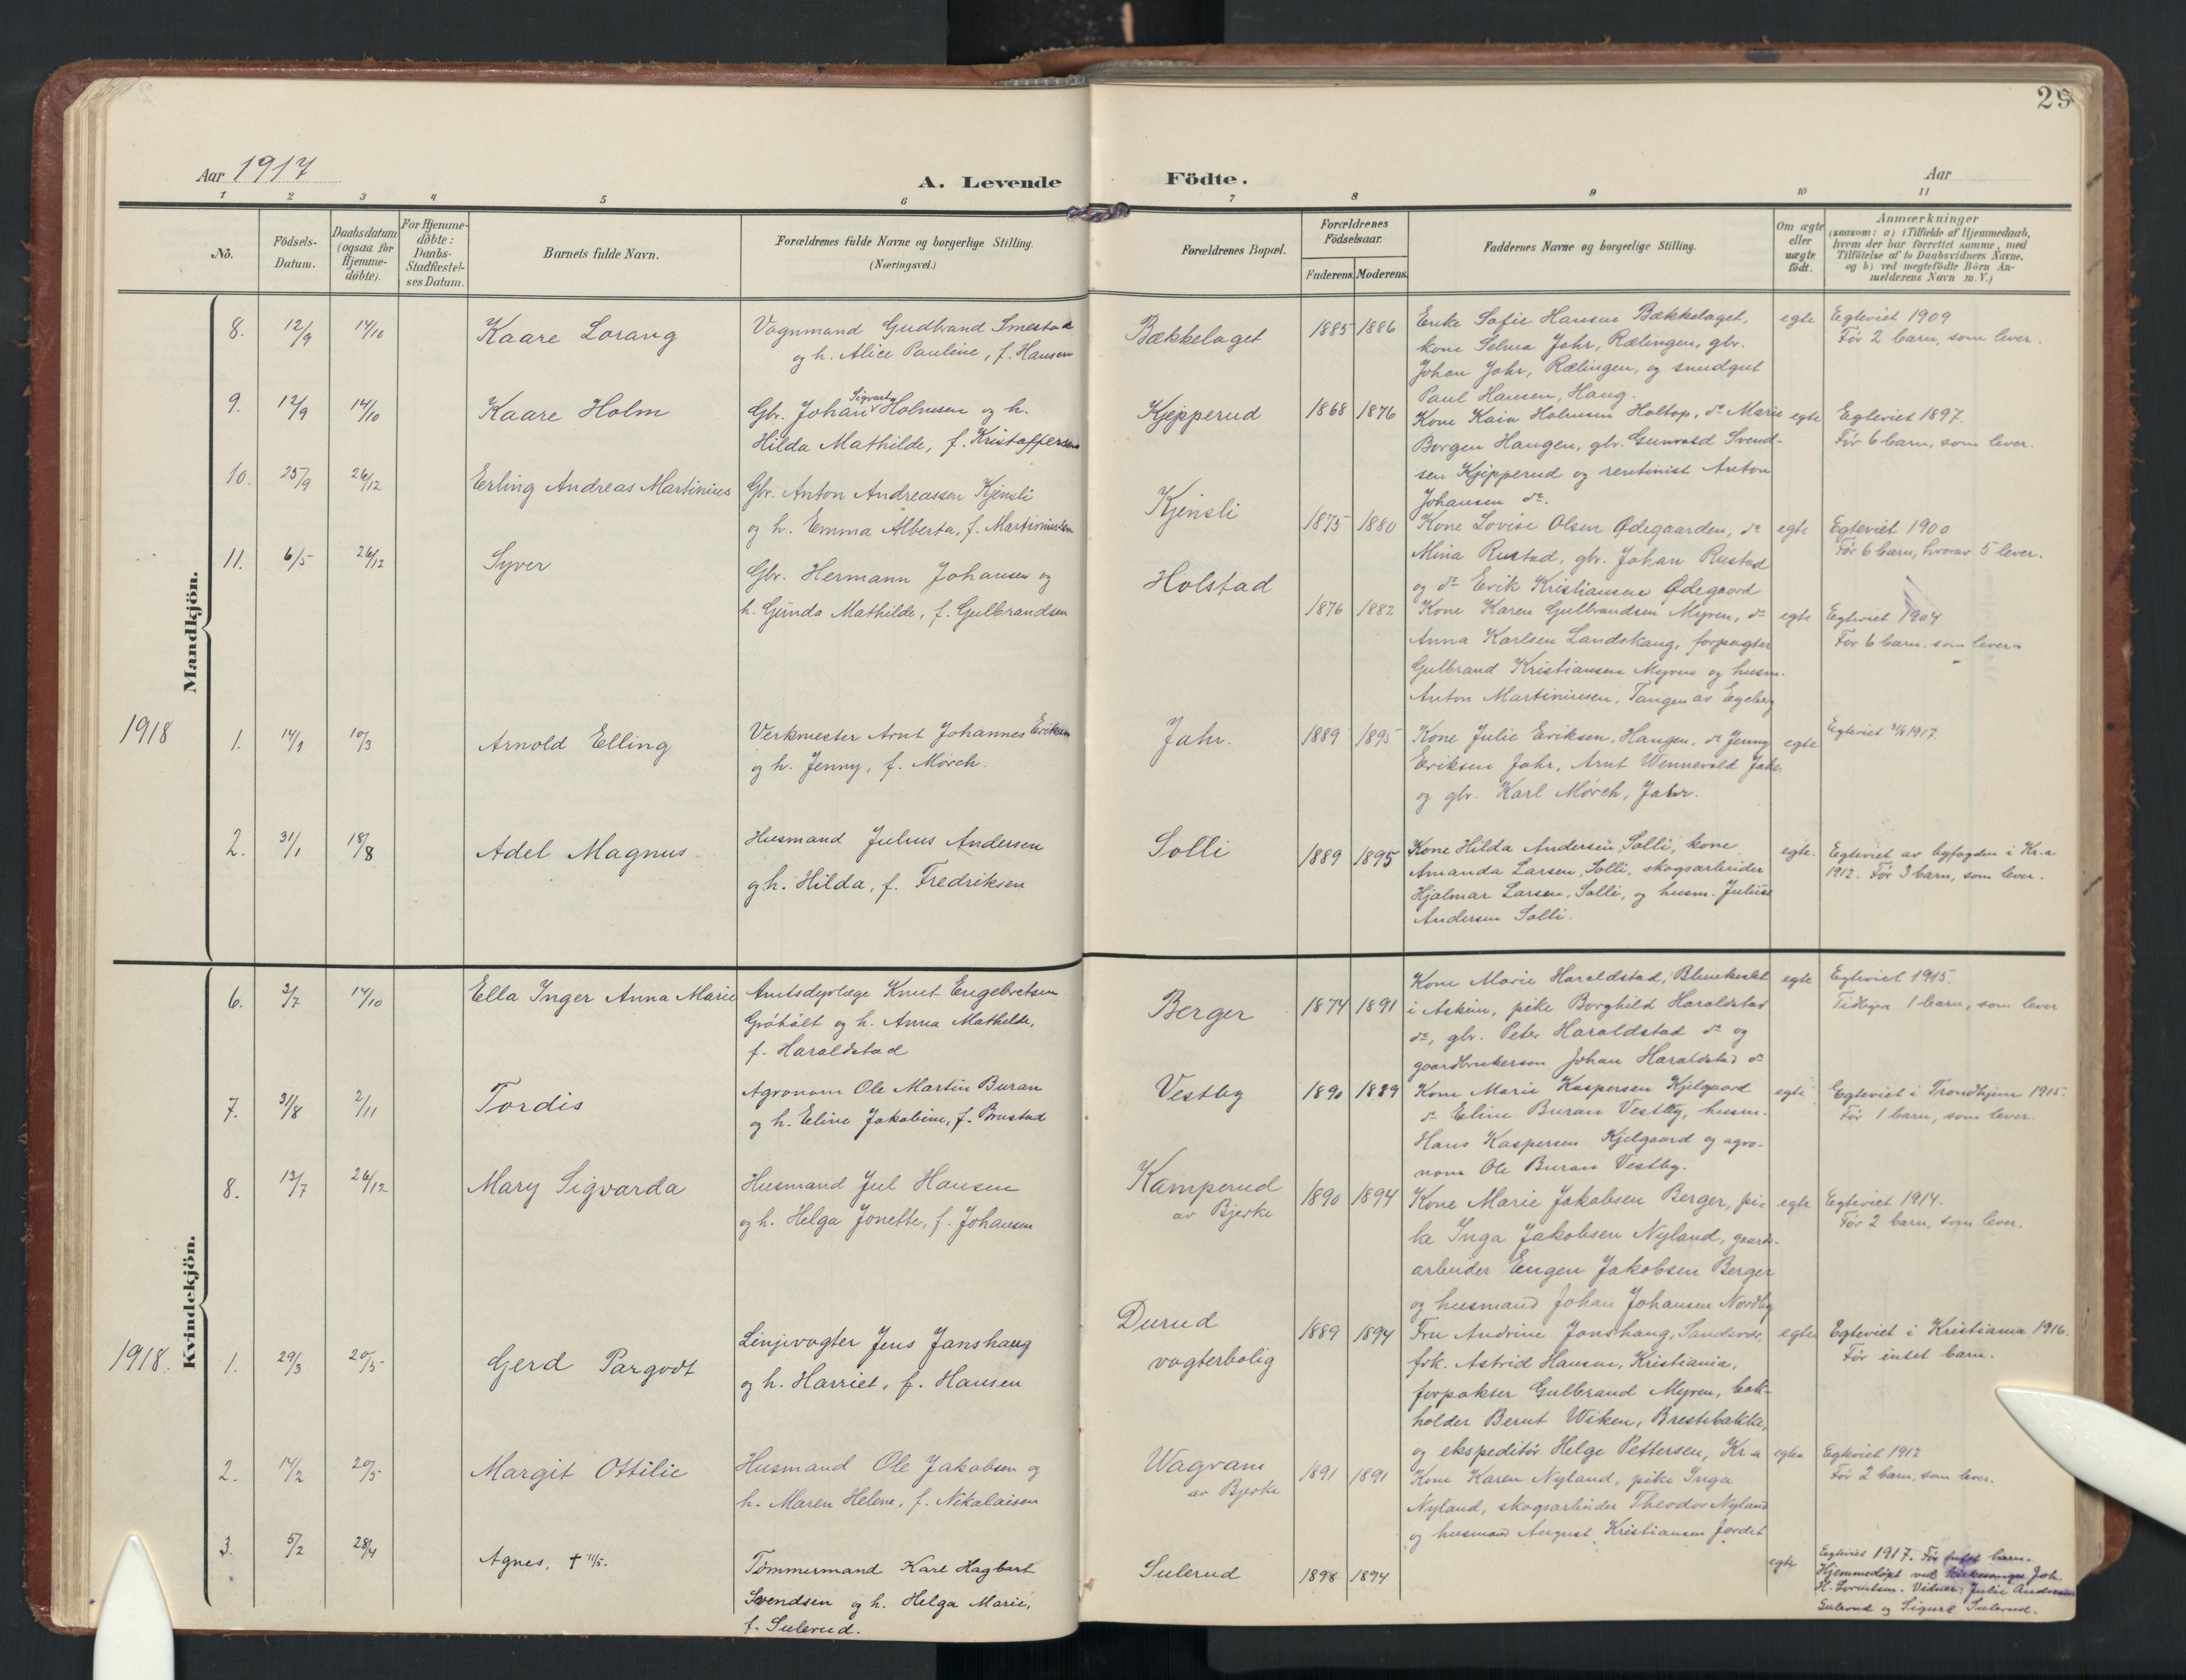 29
Aar 1917
A. Levende Födte.
Aar
1 2 3 4 5 6 7 8 9 10 11
No.
Födsels-
Datum.
Daabsdatum
(ogsaa for
Hjemme-
döbte).
For Hjemme-
döbte:
Daabs-
Stadfæstel-
ses Datum.
Barnets fulde Navn.
Forældrenes fulde Navne og borgerlige Stilling.
(Næringsvei.)
Forældrenes Bopæl.
Forældrenes
Födselsaar.
Faderens. Moderens.
Faddernes Navne og borgerlige Stilling.
Om ægte
eller
uægte
födt.
Anmærkninger
(saasom: a) i Tilfælde af Hjemmedaab,
hvem der har forrettet samme, med
Tilföielse af to Daabsvidners Navne,
og b) ved uægtefödte Börn An-
melderens Navn m.V.)
Mandkjön.
8. 12/9 14/10 Kaare Lorang
Vognmand Gudbrand Smestad
og h. Alice Pauline, f. Hansen
Bækkelaget 1885 1886
Enke Sofie Hansen Bækkelaget,
kone Selma Jahr, Rælingen, gbr.
Johan Jahr, Rælingen, og smedgut
Paul Hansen, Haug.
egte
Egteviet 1909
Før 2 barn, som lever.
9. 12/9 14/10 Kaare Holm
Gbr. Johan Sigvart Holmsen og h.
Hilda Mathilde, f. Kristoffersen
Kjepperud 1868 1876
Kone Kaia Holmsen Holtop, do Marie
Borgen Haugen, gbr. Gunvald Svend-
sen Kjepperud og rentenist Anton
Johansen do.
egte
Egteviet 1897.
Før 6 barn, som lever.
10. 25/9 26/12 Erling Andreas Martinius
Gbr. Anton Andreassen Kjensli
og h. Emma Alberta, f. Martiniussen
Kjensli 1875 1880
Kone Lovise Olsen Ødegaarden, do
Mina Rustad, gbr. Johan Rustad
og do Erik Kristiansen Ødegaard
egte
Egteviet 1900
Før 6 barn, hvorav 5 lever.
11. 6/5 26/12 Syver
Gbr. Hermann Johansen og
h. Gunda Mathilde, f. Gulbrandsen
Holstad 1876 1882
Kone Karen Gulbrandsen Myren, do
Anna Karlsen Landskaug, forpagter
Gulbrand Kristiansen Myren og husm.
Anton Martiniusen, Tangen av Egeberg
egte
Egteviet 1904
Før 6 barn, som lever.
1918
1. 14/1 10/3 Arnold Elling
Verkmester Arnt Johannes Eriksen
og h. Jenny, f. Mørch.
Jahr. 1889 1895
Kone Julie Eriksen, Haugen, do Jenny
Eriksen Jahr, Arnt Wennevold Jahr
og gbr. Karl Mørch, Jahr.
egte
Egteviet 1917.
2. 31/1 18/8 Adel Magnus
Husmand Julius Andersen
og h. Hilda, f. Fredriksen
Solli 1889 1895
Kone Hilda Andersen, Solli, kone
Amanda Larsen, Solli, skogsarbeider
Hjalmar Larsen, Solli, og husm. Julius
Andersen Solli.
egte.
Egteviet av byfogden i Kr.a
1912. Før 3 barn, som lever.
Kvindekjön.
6. 2/7 14/10 Ella Inger Anna Marie
Amtsdyrlæge Knut Engebretsen
Gróhólt og h. Anna Mathilde,
f. Haraldstad
Berger 1874 1891
Kone Marie Haraldstad,
i Askim, pike Borghild Haraldstad
do, gbr. Peter Haraldstad do og
gaardbrukersøn Johan Haraldstad do
egte
Egteviet 1915.
Tidligere 1 barn, som lever
7. 31/8 2/11 Tordis
Agronom Ole Martin Buran
og h. Eline Jakobine, f. Brustad
Vestby 1890 1889
Kone Marie Kaspersen Kjelgaard
do Eline Buran Vestby, husm.
Hans Kaspersen Kjelgaard og agro-
nom Ole Buran Vestby.
egte
Egteviet i Trondhjem 1915.
Før 1 barn, som lever.
8. 13/7 26/12 Mary Sigvarda
Husmand Jul Hansen
og h. Helga Jonette, f. Johansen
Kamperud
av Bjerke
1890 1894
Kone Marie Jakobsen Berger, pi-
ke Inga Jakobsen Nyland, gaards-
arbeider Eugen Jakobsen Berger
og husmand Johan Johansen Nordby
egte
Egteviet 1914.
Før 2 barn, som lever.
1918.
1. 29/3 20/5 Gerd Pargodt
Linjevogter Jens Janshaug
og h. Harriet, f. Hansen
Durud
vogterbolig
1889 1894
Fru Andrine Jonshaug, Sandsvær,
frk. Astrid Hansen, Kristiania,
forpakter Gulbrand Myren, bok-
holder Bernt Wiken, Brestebakke,
og ekspeditør Helge Pettersen, Kr.a
egte
Egteviet i Kristiania 1916.
Før intet barn.
2. 14/2 20/5 Margit Ottilie
Husmand Ole Jakobsen og
h. Maren Helene, f. Nikolaisen
Wagram
av Bjerke
1891 1891
Kone Karen Nyland, pike Inga
Nyland, skogsarbeider Theodor Nyland
og husmand August Kristiansen Jordet
egte
Egteviet 1912
Før 2 barn, som lever.
3. 5/2 28/4 Agnes, † 11/5.
Tømmermand Karl Hagbart
Svendsen og h. Helga Marie,
f. Sulerud.
Sulerud 1898 1894
egte
Egteviet 1917. Før intet barn.
Hjemmedøpt ved kirkesanger Joh.
H. Lorentsen. Vidner: Julie Andersen
Sulerud og Sigurd Sulerud.